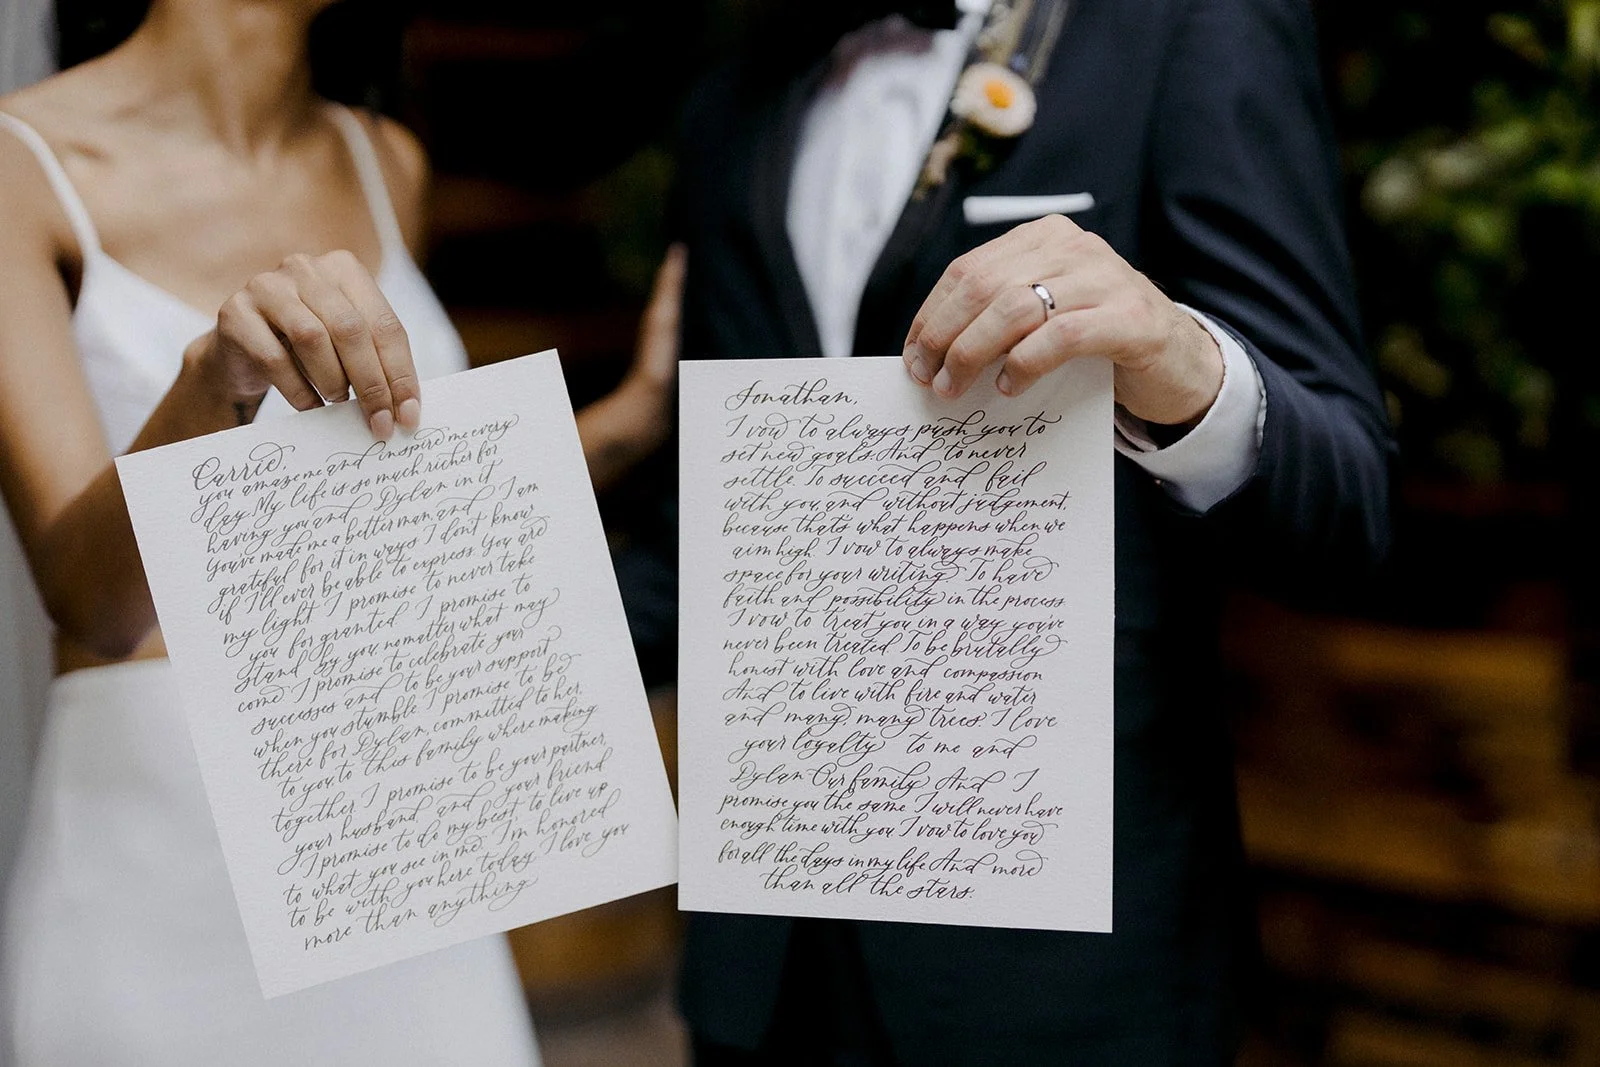 Carrie,
you amaze me and inspire me every
day. My life is so much richer for
having you and Dylan in it
You've made me a better man, and I am
grateful for it in ways I don't know
if I'll ever be able to express. You are
my light. I promise to never take
you for granted. I promise to
stand by you, no matter what may
come. I promise to celebrate your
successes and to be your support
when you stumble. I promise to be
there for Dylan, committed to her,
to you, to this family where making
together. I promise to be your partner,
your husband, and your friend
I promise to do my best, to live up
to what you see in me. I'm honored
to be with you here today. I love you
more than anything
Jonathan,
I vow to always push you to
set new goals. And to never
settle. To succeed and fail
with you, and without judgement,
because thats what happens when we
aim high. I vow to always make
space for your writing. To have
faith and possibility in the process.
I vow to treat you in a way you've
never been treated. To be brutally
honest with love and compassion
And to live with fire and water
and many, many trees. I love
your loyalty to me and
Dylan-Our family. And I
promise you the same. I will never have
enough time with you. I vow to love you
for all the days in my life. And more
than all the stars.